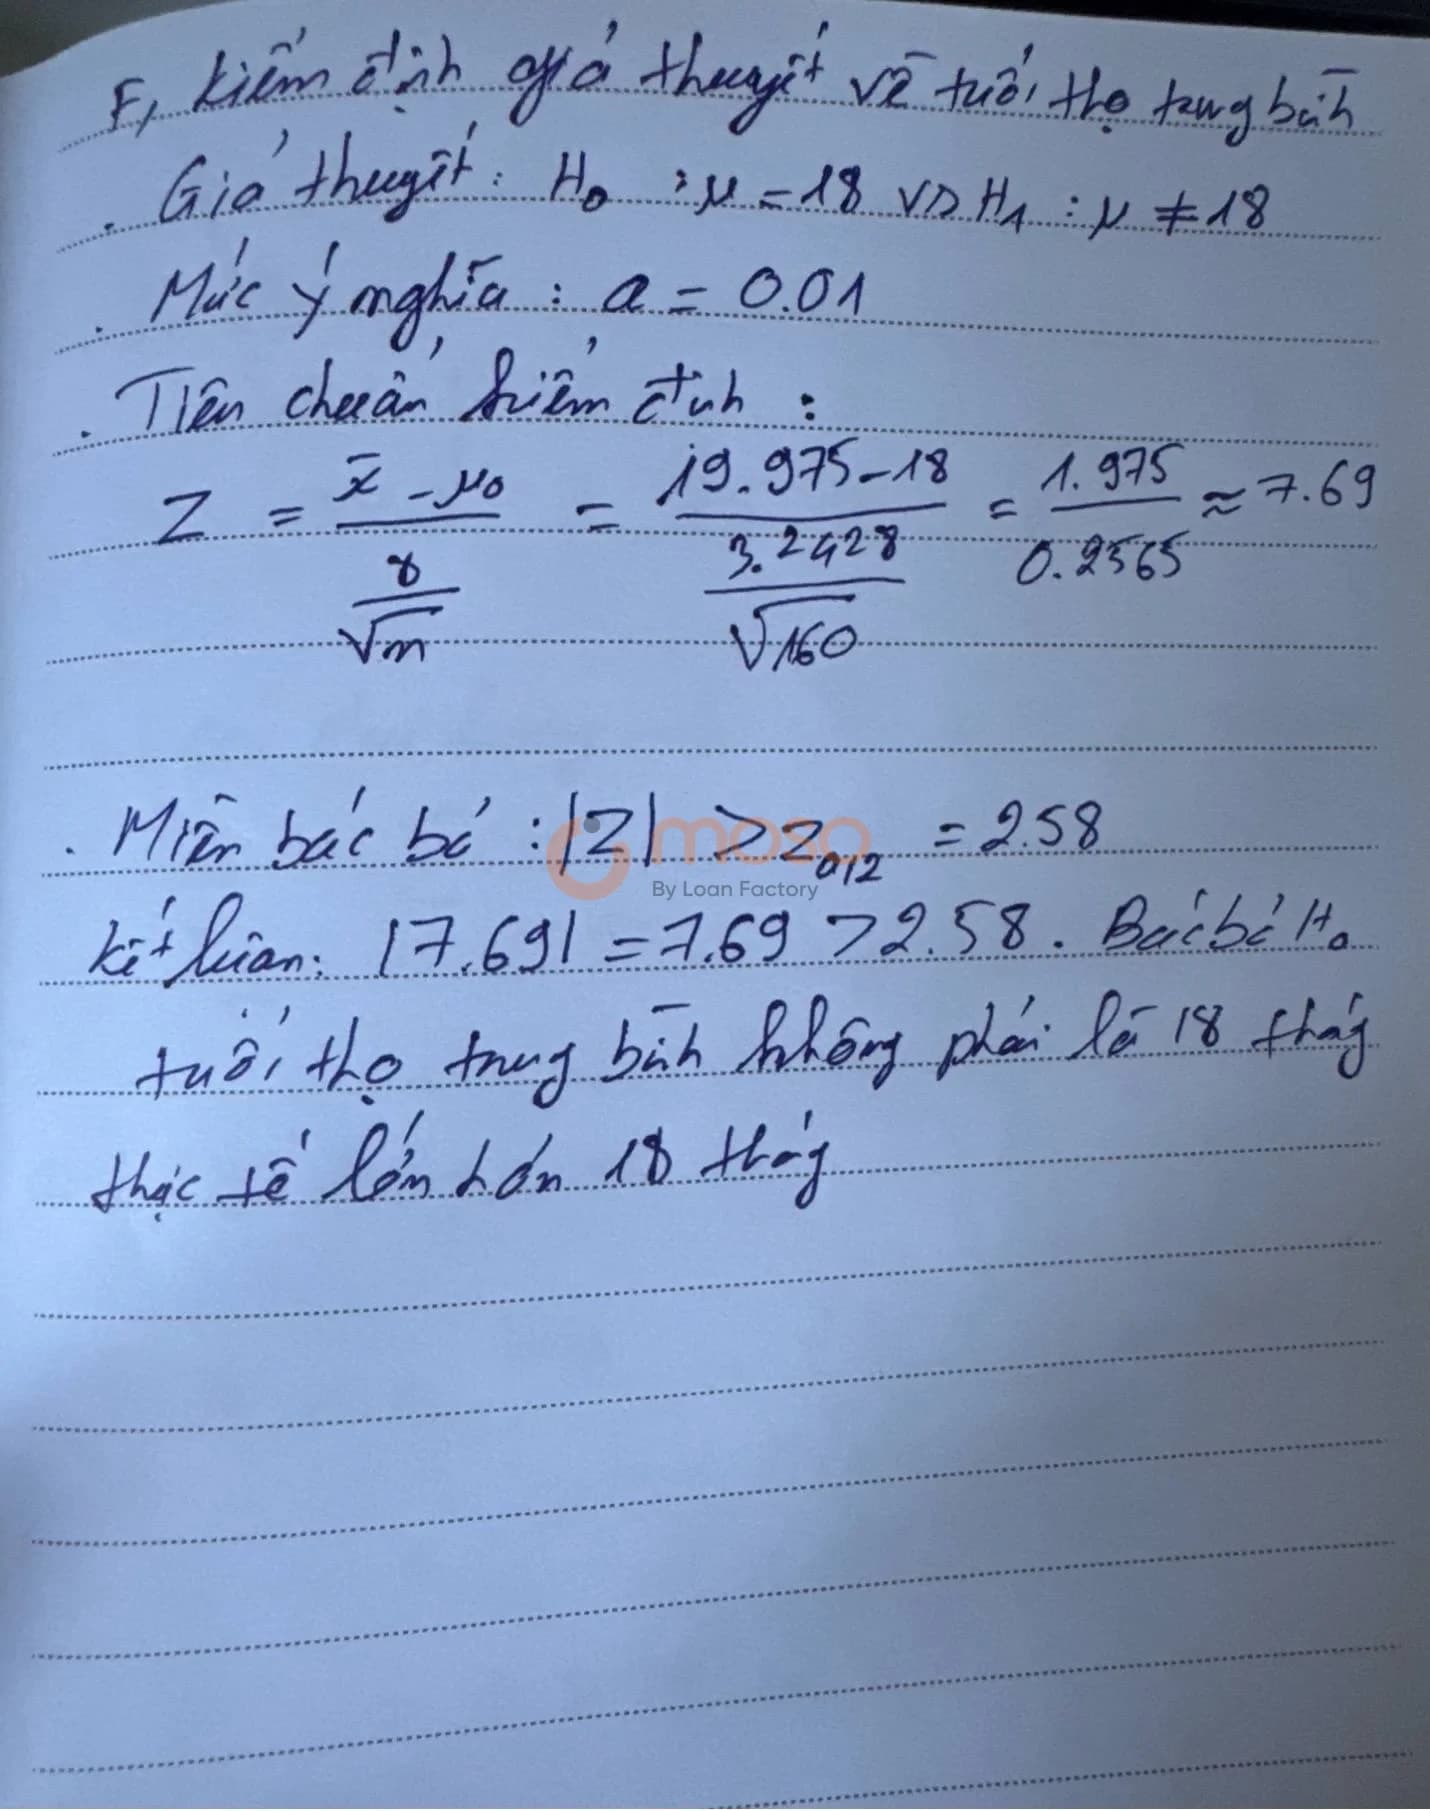 F, Kiểm định giả thuyết về tuổi thọ trung bình
. Giả thuyết: H₀ : μ = 18 vs H₁ : μ ≠ 18
. Mức ý nghĩa : α = 0.01
. Tiên chuẩn kiểm định :
Z = (x̄ - μ₀) / (s / √n) = (19.975 - 18) / (3.2428 / √160) = 1.975 / 0.2565 ≈ 7.69
. Miền bác bỏ : |Z| > Z α/2 = 2.58
moso
By Loan Factory
Kết luận: |7.69| = 7.69 > 2.58. Bác bỏ H₀
tuổi thọ trung bình không phải là 18 tháng
thực tế lớn hơn 18 tháng